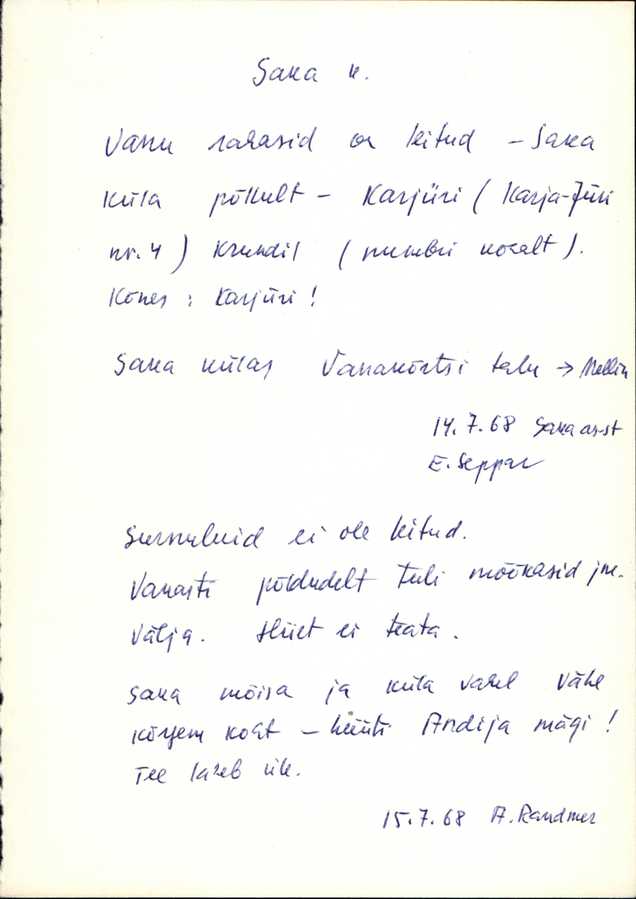 Saka k.
Vanu rahasid on leitud – Saka
küla põllult – Karjüri (Karja-Jüri
nr. 4) krundil (numbri kohalt).
Kones: Karjüri!
Saka külas Vanakõrtsi talu → Mellin
14.7.68 Saka as-st
E. Seppar
Surnuluid ei ole leitud.
Vanasti põldudelt tuli mõõkasid jne.
välja. Hiiet ei teata.
Saka mõisa ja küla vahel vähe
kõrgem koht – hüüti Andija mägi!
Tee läheb üle.
15.7.68 A. Randmer